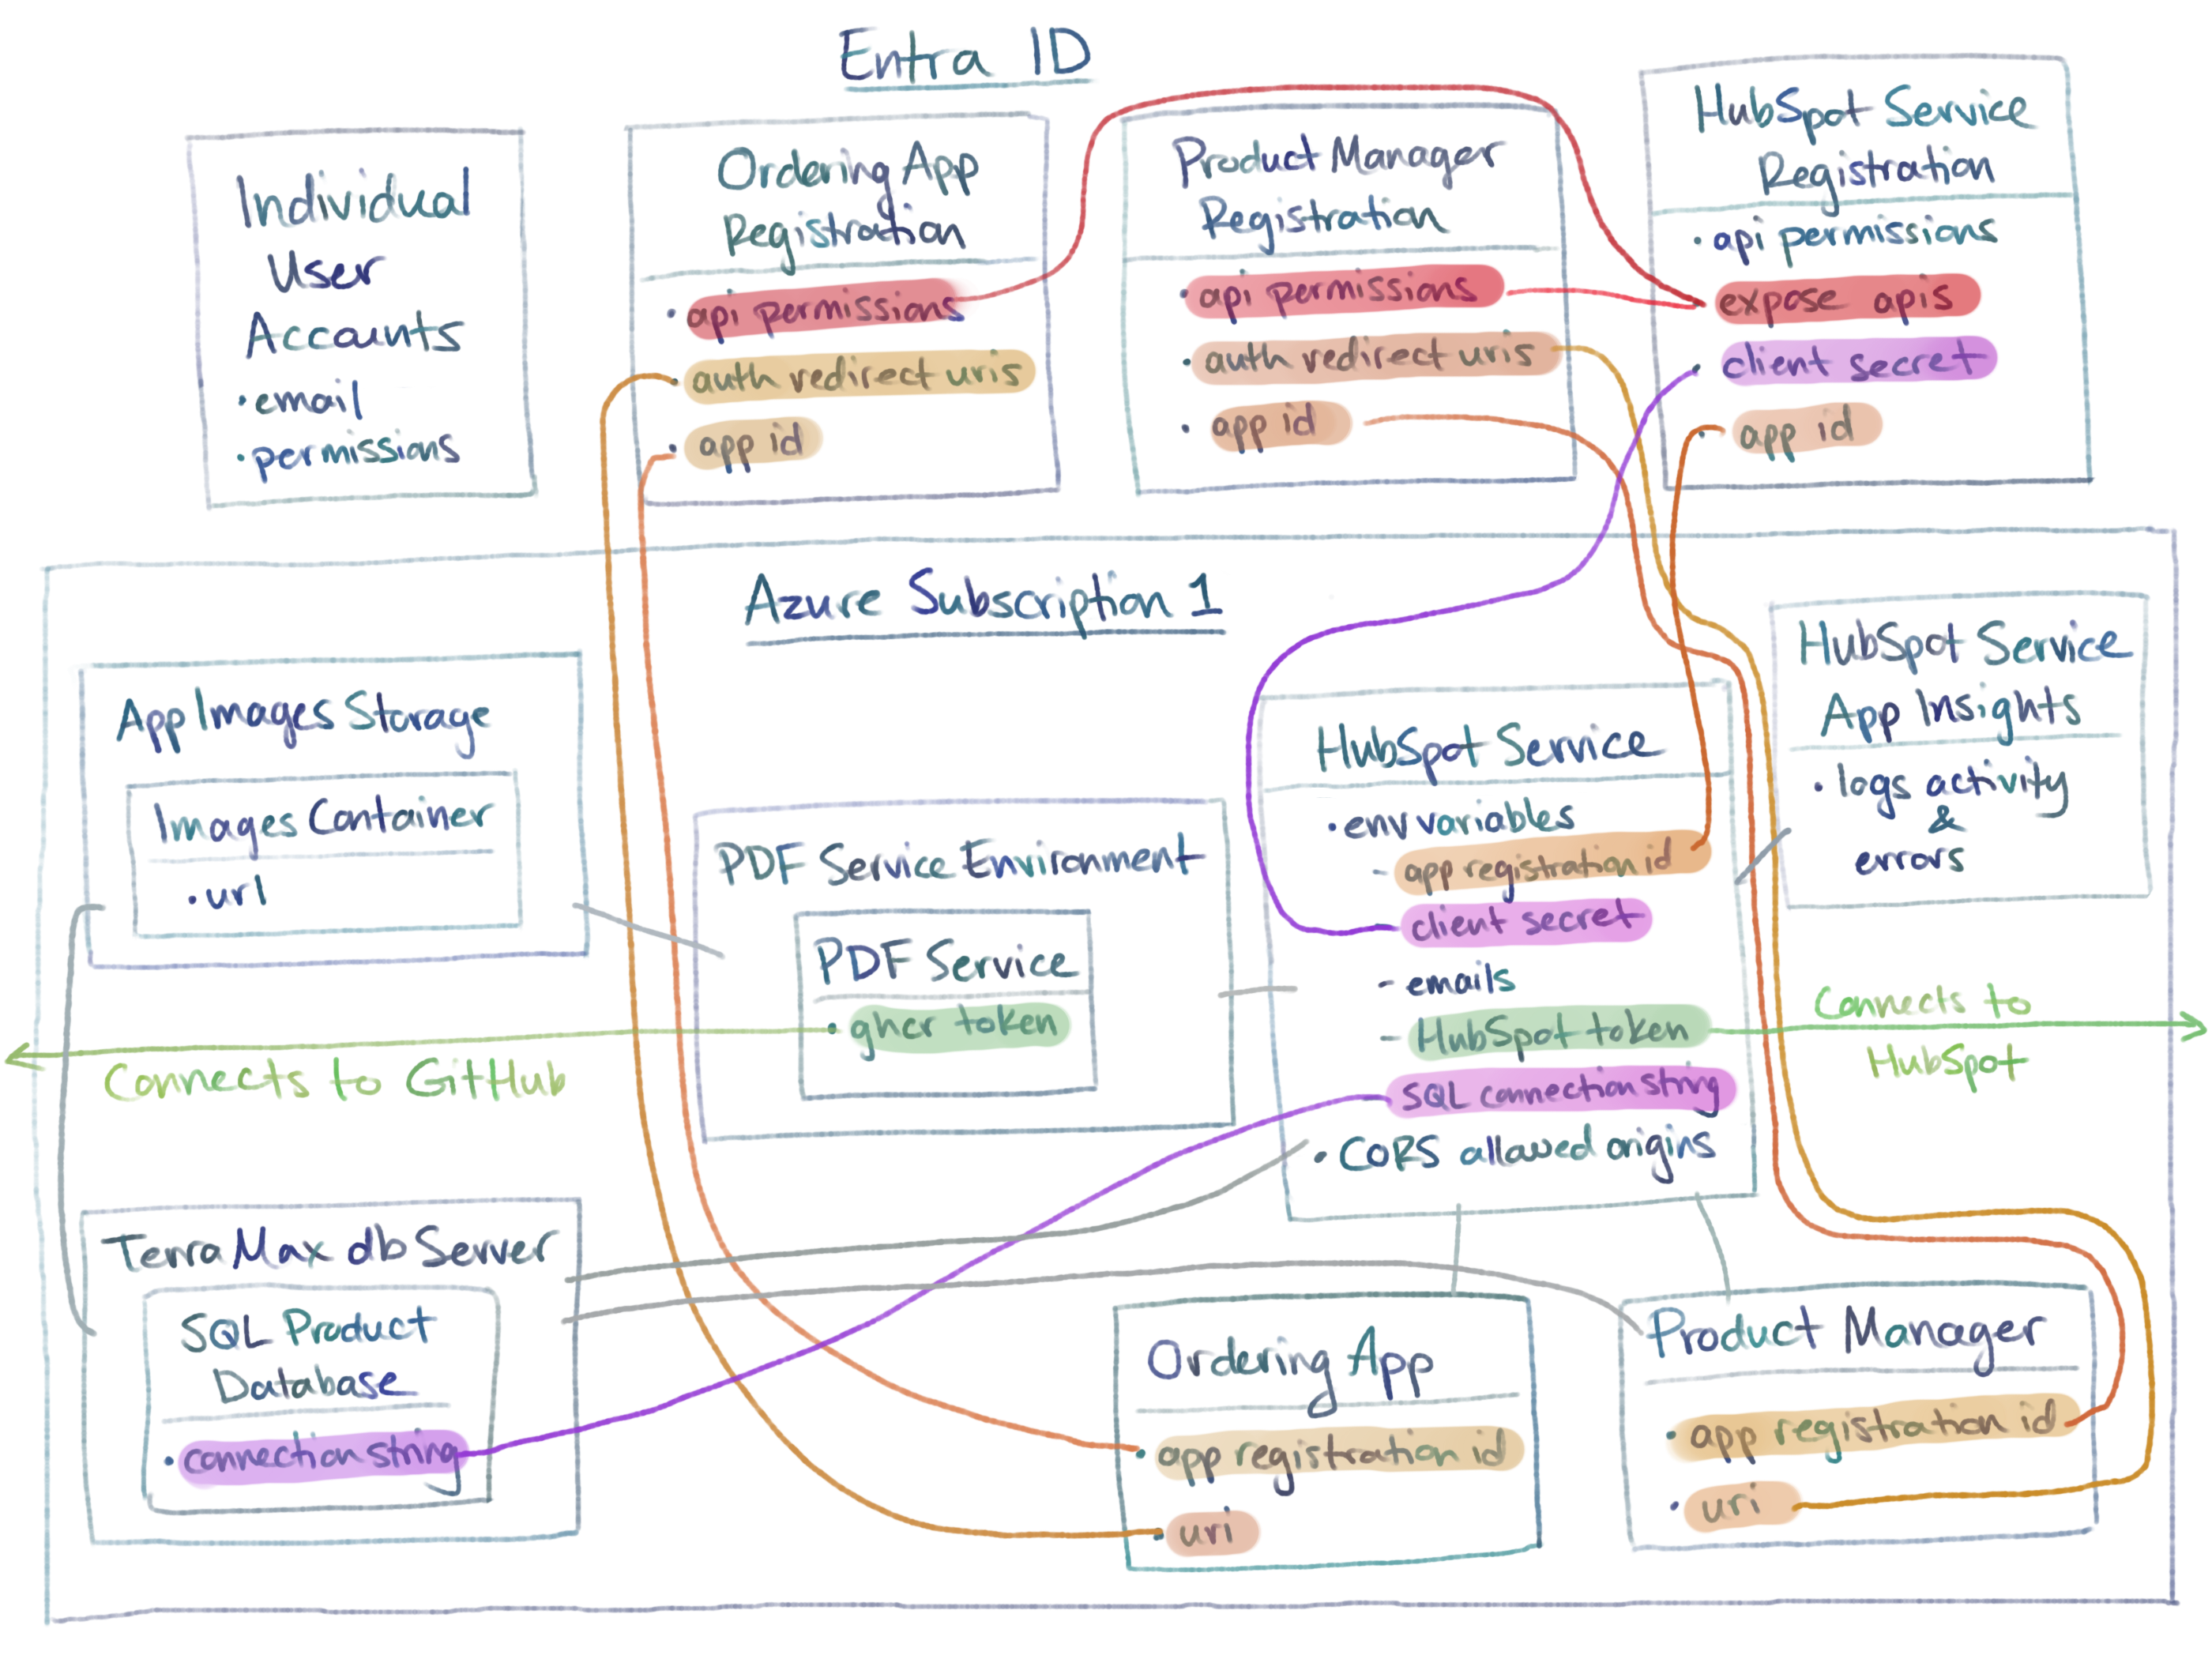 Entra ID
Individual
User
Accounts
• email
• permissions
Ordering App
Registration
• api permissions
• auth redirect uris
• app id
Product Manager
Registration
• api permissions
• auth redirect uris
• app id
HubSpot Service
Registration
• api permissions
expose apis
• client secret
• app id
Azure Subscription 1
App Images Storage
Images Container
• url
PDF Service Environment
PDF Service
• ghcr token
Connects to GitHub
HubSpot Service
• env variables
- app registration id
- client secret
- emails
- HubSpot token
- SQL connection string
• CORS allowed origins
HubSpot Service
App Insights
• logs activity
&
errors
Connects to
HubSpot
TerraMax db Server
SQL Product
Database
• connection string
Ordering App
• app registration id
• uri
Product Manager
• app registration id
• uri